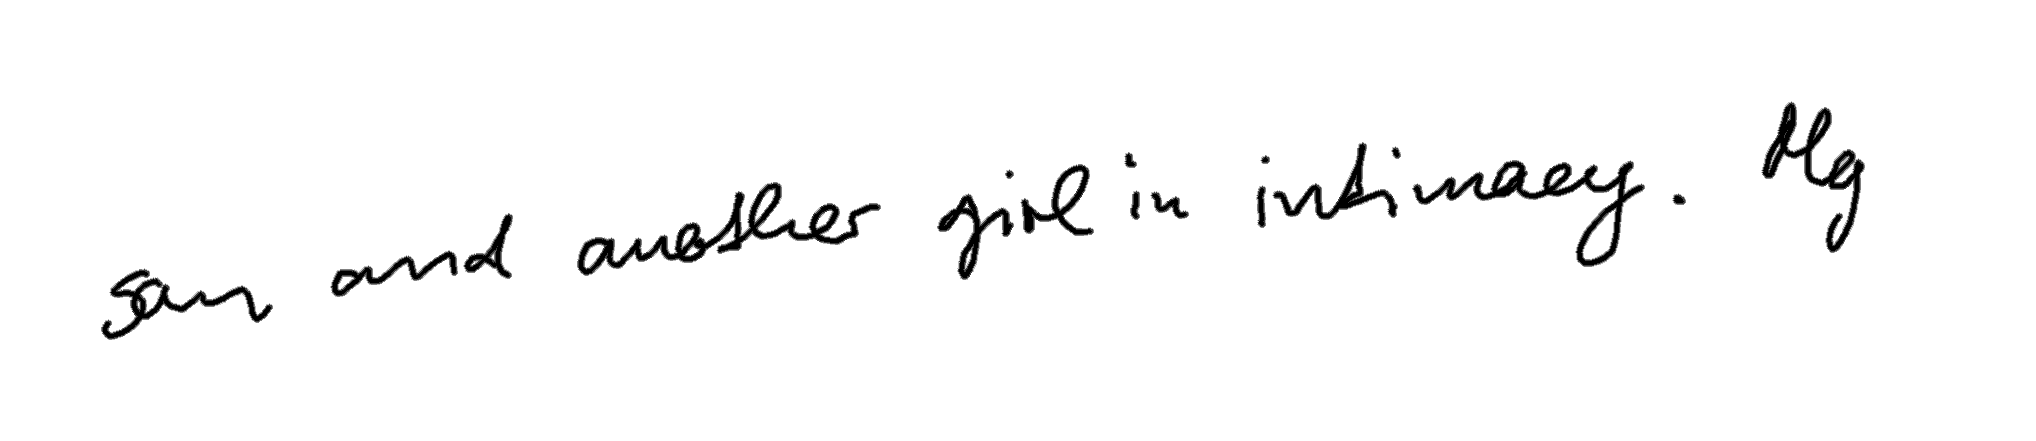 san and another girl in intimacy. Mg